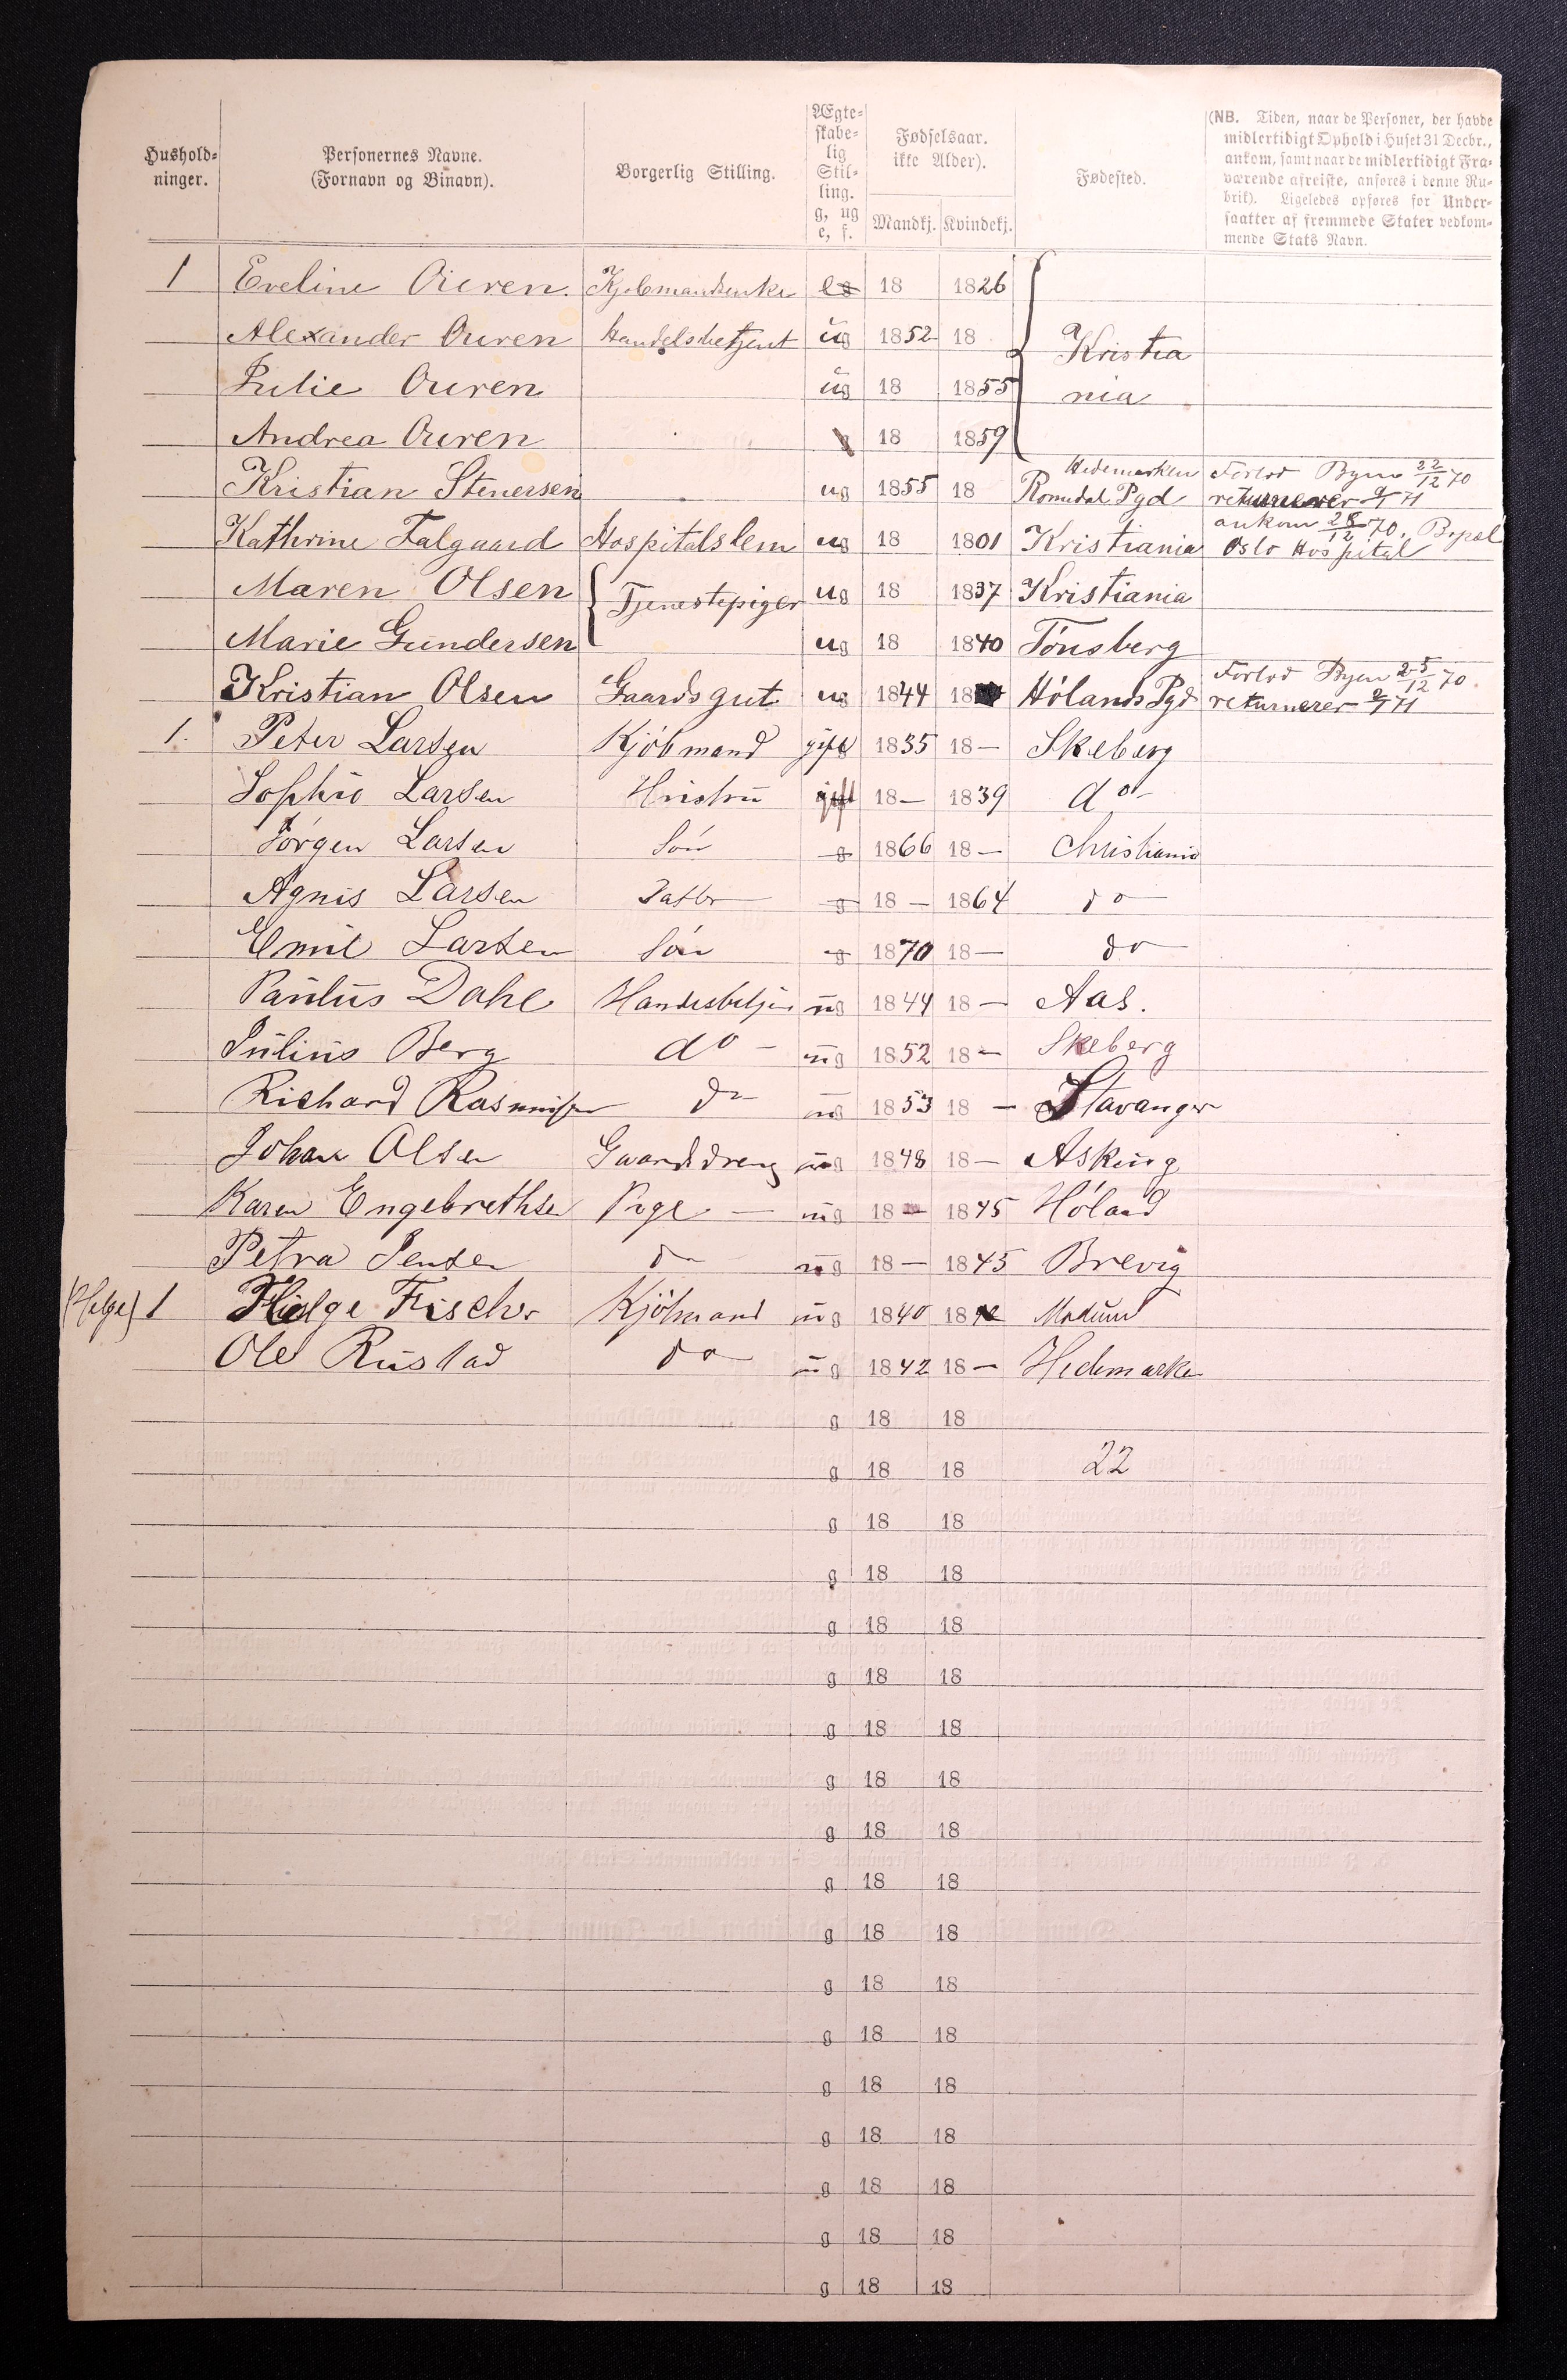 Hushold-
ninger.
Personernes Navne.
(Fornavn og Binavn).
Borgerlig Stilling.
Ægte-
skabe-
lig
Stil-
ling.
g, ug
e, f.
Fødselsaar.
ikke Alder).
Mandkj. Kvindekj.
Fødested.
(NB. Tiden, naar de Personer, der havde
midlertidigt Ophold i Huset 31 Decbr.,
ankom, samt naar de midlertidigt Fra-
værende afreiste, anføres i denne Ru-
brik). Ligeledes opføres for Under-
saatter af fremmede Stater vedkom-
mende Stats Navn.
1 Eveline Ouren. Kjøbmandsenke e 18 1826
Alexander Ouren Handelsbetjent ug 1852 18 Kristia
Julie Ouren ug 18 1855 nia
Andrea Ouren g 18 1859
Hedemarken Forlod Byen 22/12 70
Kristian Stenersen ug 1855 18 Romedal Pgd returnerer 9/1 71
ankom 28/12 70.
Kathrine Falgaard Hospitalslem ug 18 1801 Kristiania Oslo Hospital
Maren Olsen Tjenestepiger ug 18 1837 Kristiania
Marie Gundersen ug 18 1840 Tönsberg
Forlod Byen 25/12 70.
Kristian Olsen Gaardsgut ug 1844 18 Hölands Pgd returnerer 9/1 71
1. Peter Larsen Kjöbmand gift 1835 18 — Skeberg
Sophie Larsen Hustru gift 18 — 1839 do
Jörgen Larsen Sön g 1866 18 — Christiania
Agnis Larsen Datter g 18 — 1864 do
Emil Larsen Sön g 1870 18 — do
Paulus Dahl Handesbetjen ug 1844 18 — Aas.
Julius Berg do — ug 1852 18 — Skeberg
Richard Rasmussen do ug 1853 18 — Stavanger
Johan Olsen Gaardsdreng ug 1848 18 — Askeng
Karen Engebrethsen Pige — ug 18 — 1845 Höland
Petra Jensen do ug 18 — 1845 Brevig
(Helge) 1 Helge Fischer Kjöbmand ug 1840 18 Modum
Ole Rustad do ug 1842 18 — Hedemarken
g 18 18
g 18 18 22
g 18 18
g 18 18
g 18 18
g 18 18
g 18 18
g 18 18
g 18 18
g 18 18
g 18 18
g 18 18
g 18 18
g 18 18
g 18 18
g 18 18
g 18 18
g 18 18